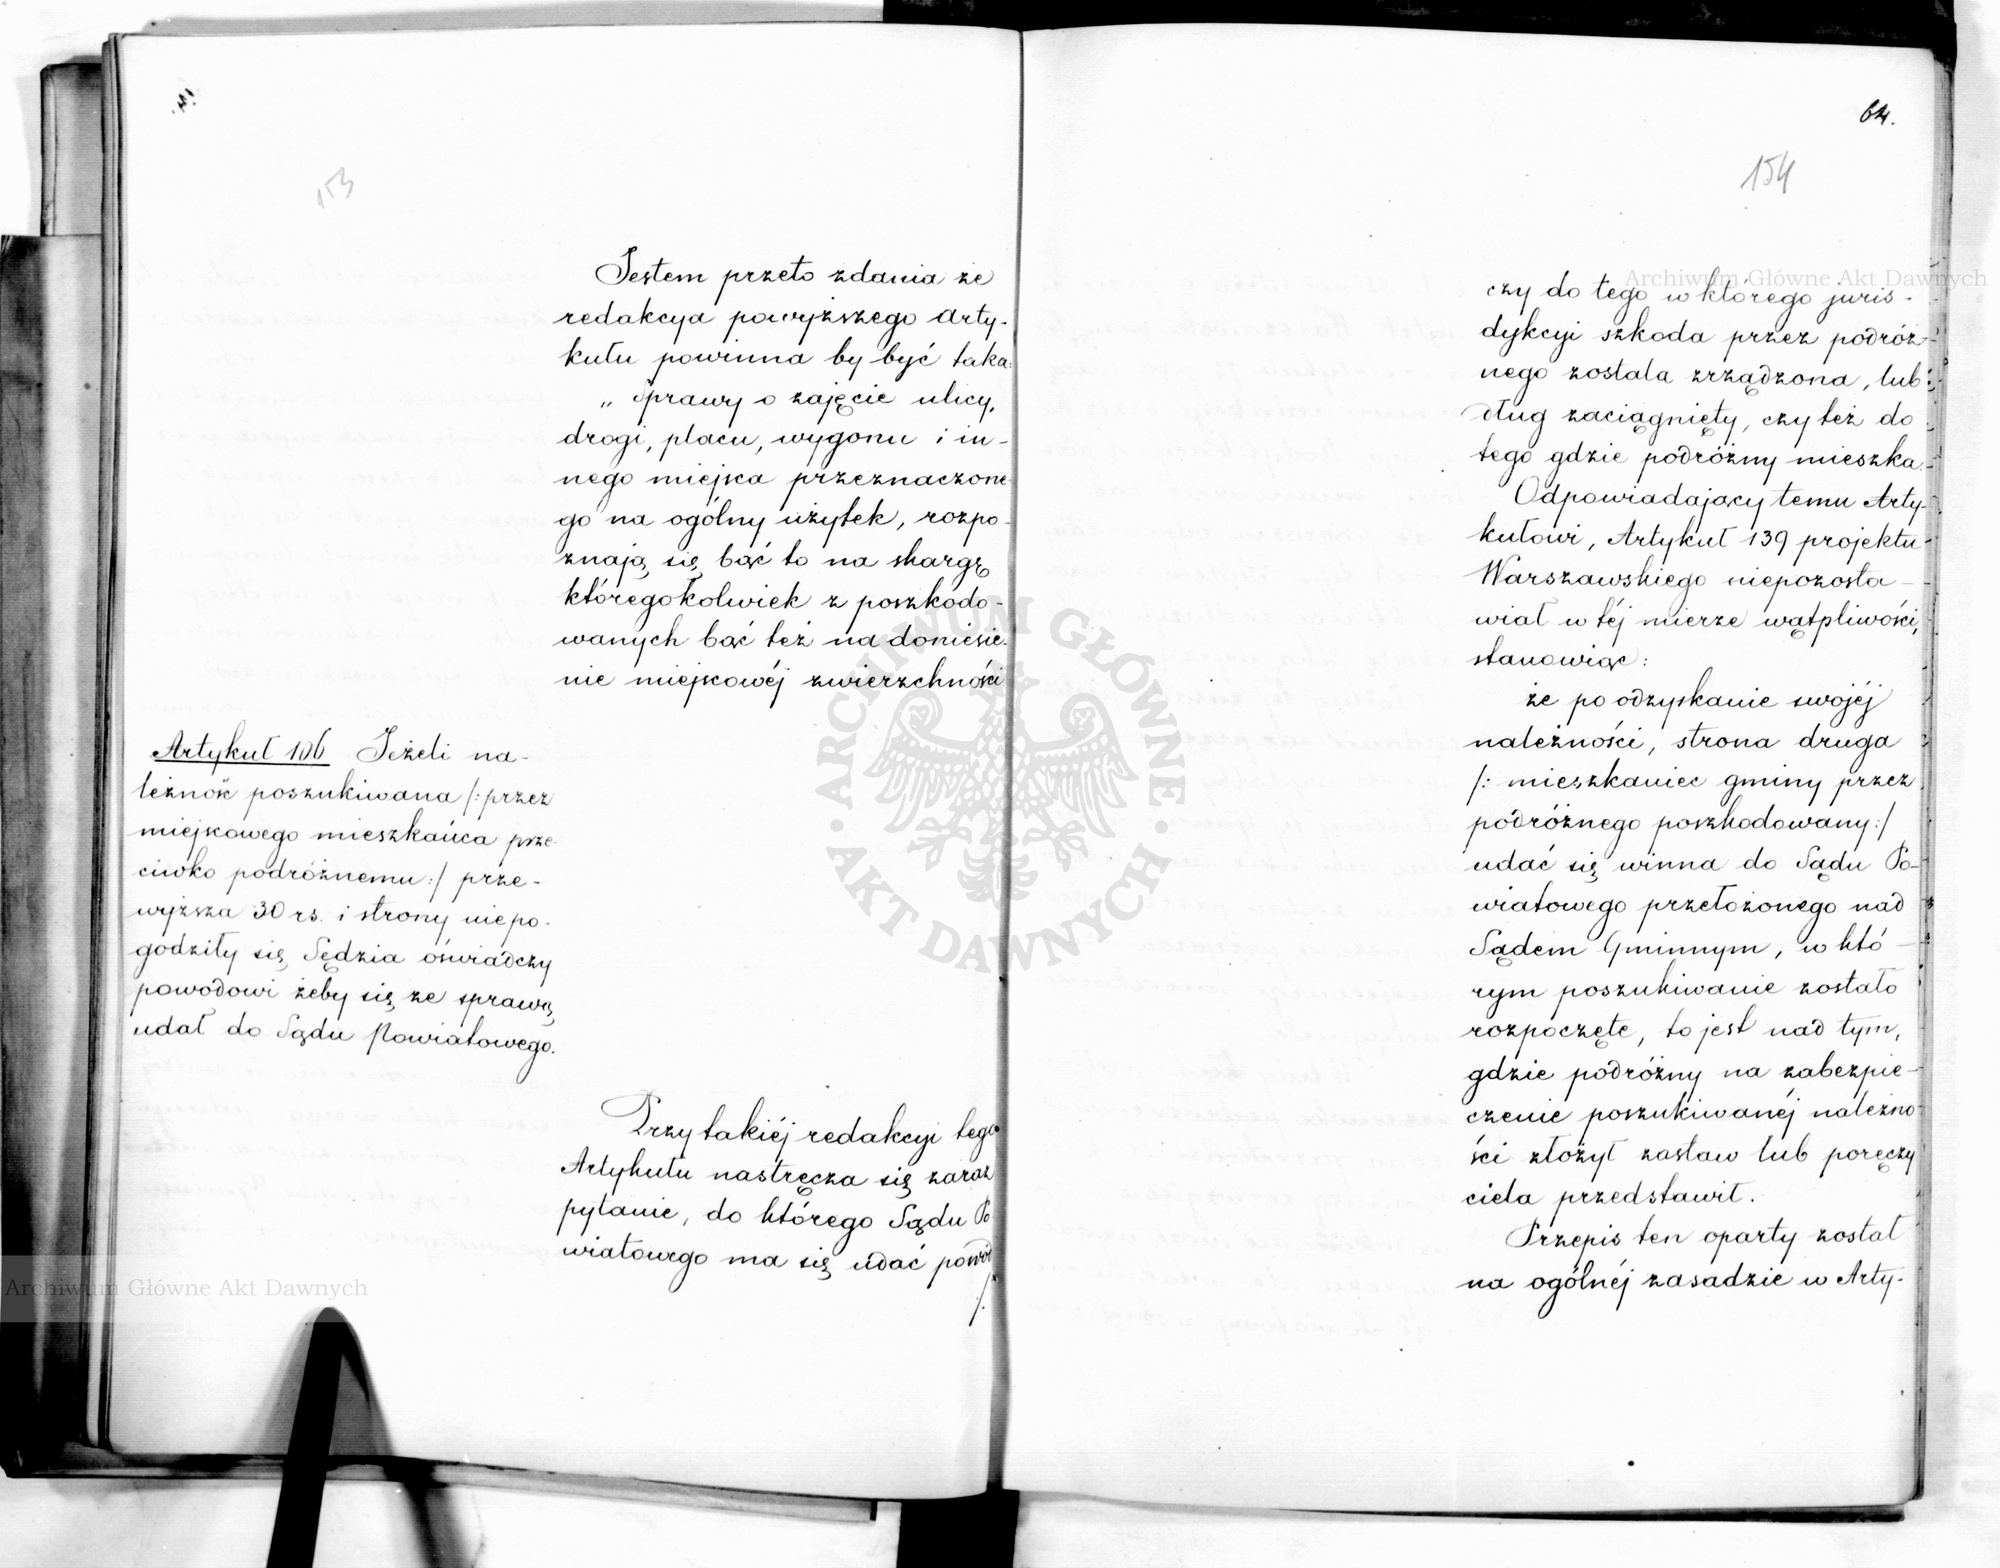 153
Jestem przeto zdania że
redakcya powyższego Arty-
kułu powinna by być taka:
„Sprawy o zajęcie ulicy,
drogi, placu, wygonu i in-
nego miejsca przeznaczone-
go na ogólny użytek, rozpo-
znają się bąć to na skargę
któregokolwiek z poszkodo-
wanych bąć też na doniesie-
nie miejscowéj zwierzchności
Artykuł 106 Jeżeli na-
leżność poszukiwana /: przez
miejscowego mieszkańca prze-
ciwko podróżnemu :/ prze-
wyższa 30 rs. i strony niepo-
godziły się Sędzia oświadczy
powodowi żeby się ze sprawą
udał do Sądu Powiatowego.
Przy takiéj redakcyi tego
Artykułu nastręcza się zaraz
pytanie, do którego Sądu Po
wiatowego ma się udać powód
/.
64.
154
czy do tego w którego juris-
dykcyi szkoda przez podróż-
nego została zrządzona, lub
dług zaciągnięty, czy też do
tego gdzie podróżny mieszka.
Odpowiadający temu Arty-
kułowi, Artykuł 139 projektu
Warszawskiego niepozosta-
wiał w téj mierze wątpliwości,
stanowiąc:
że po odzyskanie swojéj
należności, strona druga
/: mieszkaniec gminy przez
podróżnego poszkodowany :/
udać się winna do Sądu Po-
wiatowego przełożonego nad
Sądem Gminnym, w któ-
rym poszukiwanie zostało
rozpoczęte, to jest nad tym,
gdzie podróżny na zabezpie-
czenie poszukiwanéj należno-
ści złożył zastaw lub poręczy
ciela przedstawił.
Przepis ten oparty został
na ogólnéj zasadzie w Arty-
Archiwum Główne Akt Dawnych
Archiwum Główne Akt Dawnych
ARCHIWUM GŁÓWNE
AKT DAWNYCH